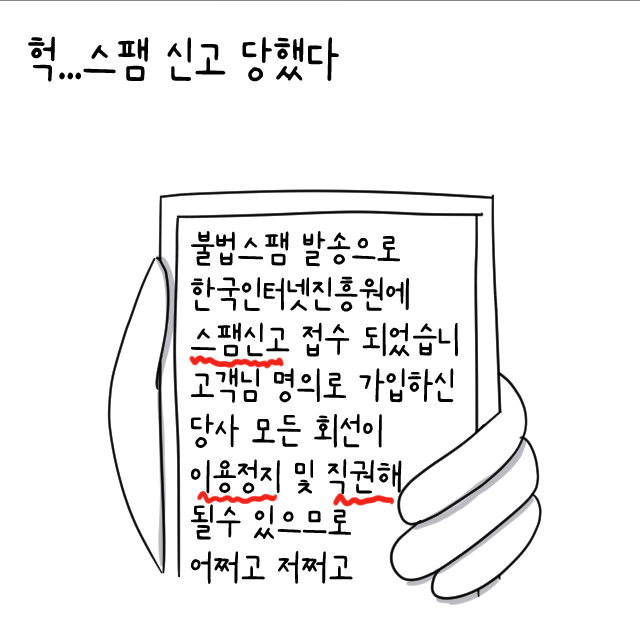 헉...스팸 신고 당했다
불법스팸 발송으로
한국인터넷진흥원에
스팸신고 접수 되었습니
고객님 명의로 가입하신
당사 모든 회선이
이용정지 및 직권해
될수 있으므로
어쩌고 저쩌고